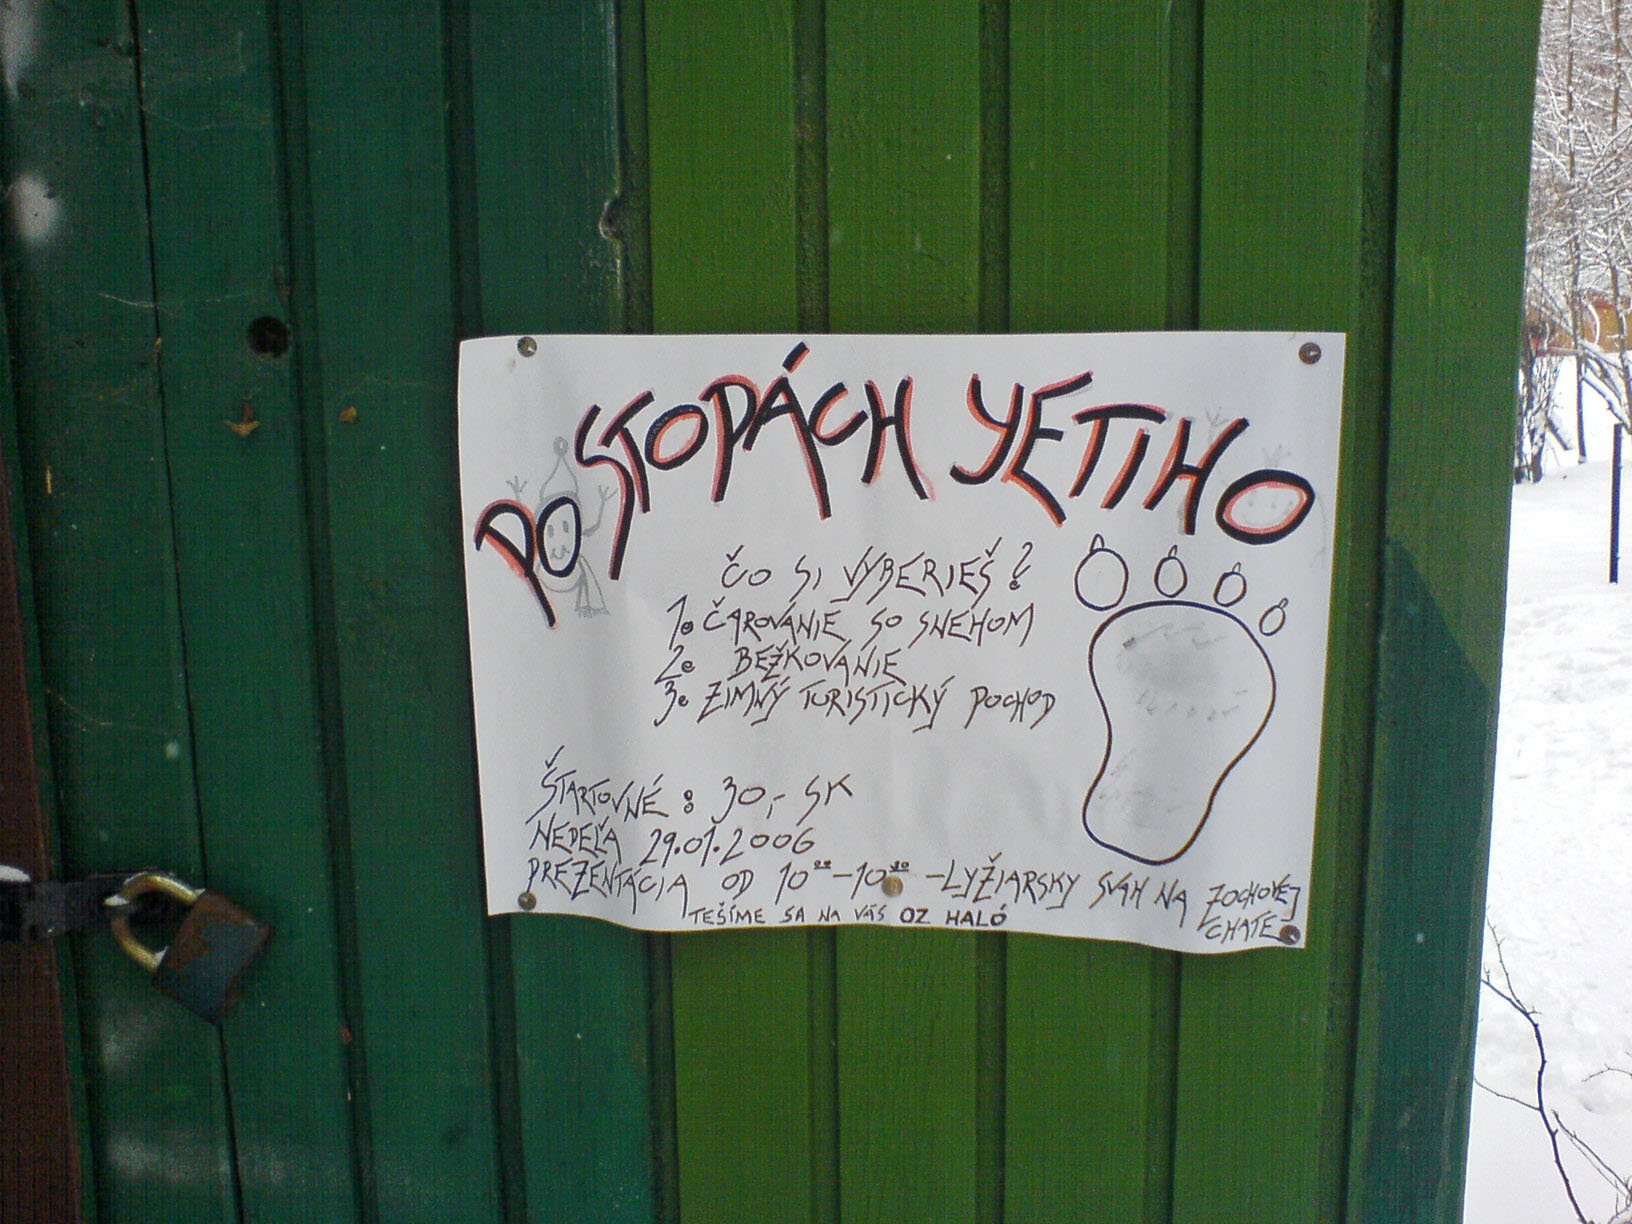 PO STOPÁCH YETIHO
ČO SI VYBERIEŠ?
1. ČAROVANIE SO SNEHOM
2. BEŽKOVANIE
3. ZIMNÝ TURISTICKÝ POCHOD
ŠTARTOVNÉ : 30,- SK
NEDEĽA 29.01.2006
PREZENTÁCIA OD 10⁰⁰-10³⁰ -LYŽIARSKY SVAH NA ZOCHOVEJ
CHATE
TEŠÍME SA NA VÁS OZ HALÓ